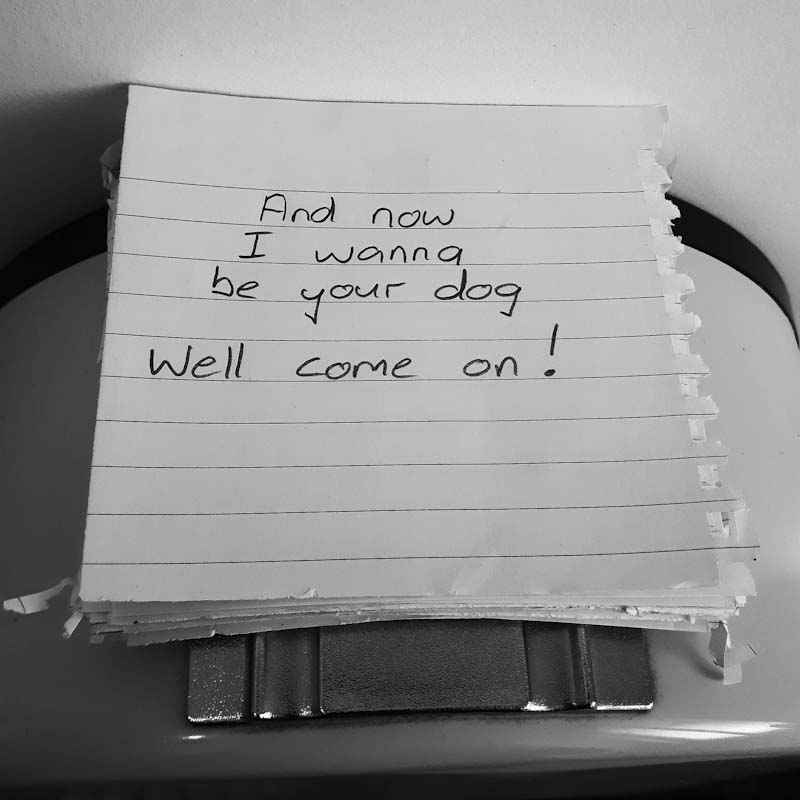 And now
I wanna
be your dog
Well come on!